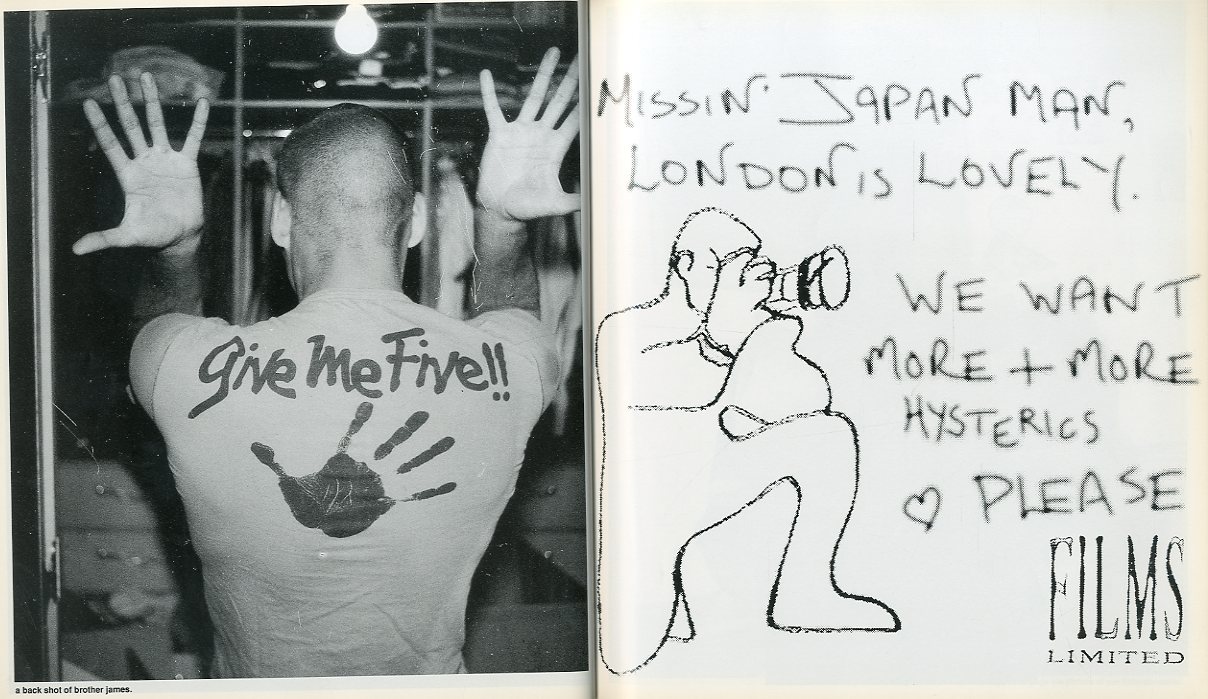 Give Me Five!!
a back shot of brother james.
MISSIN' JAPAN MAN,
LONDON IS LOVELY.
WE WANT
MORE + MORE
HYSTERICS
♡ PLEASE
FILMS
LIMITED